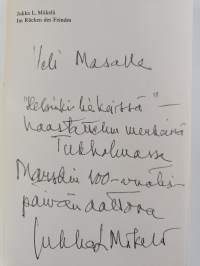 Jukka L. Mäkelä
Im Rücken des Feindes
Veli Masalle
"Helsinki liekeissä" –
haastattelun merkeissä
Tukholmassa
Marskin 100-vuotis-
päivän aattona
Jukka L Mäkelä